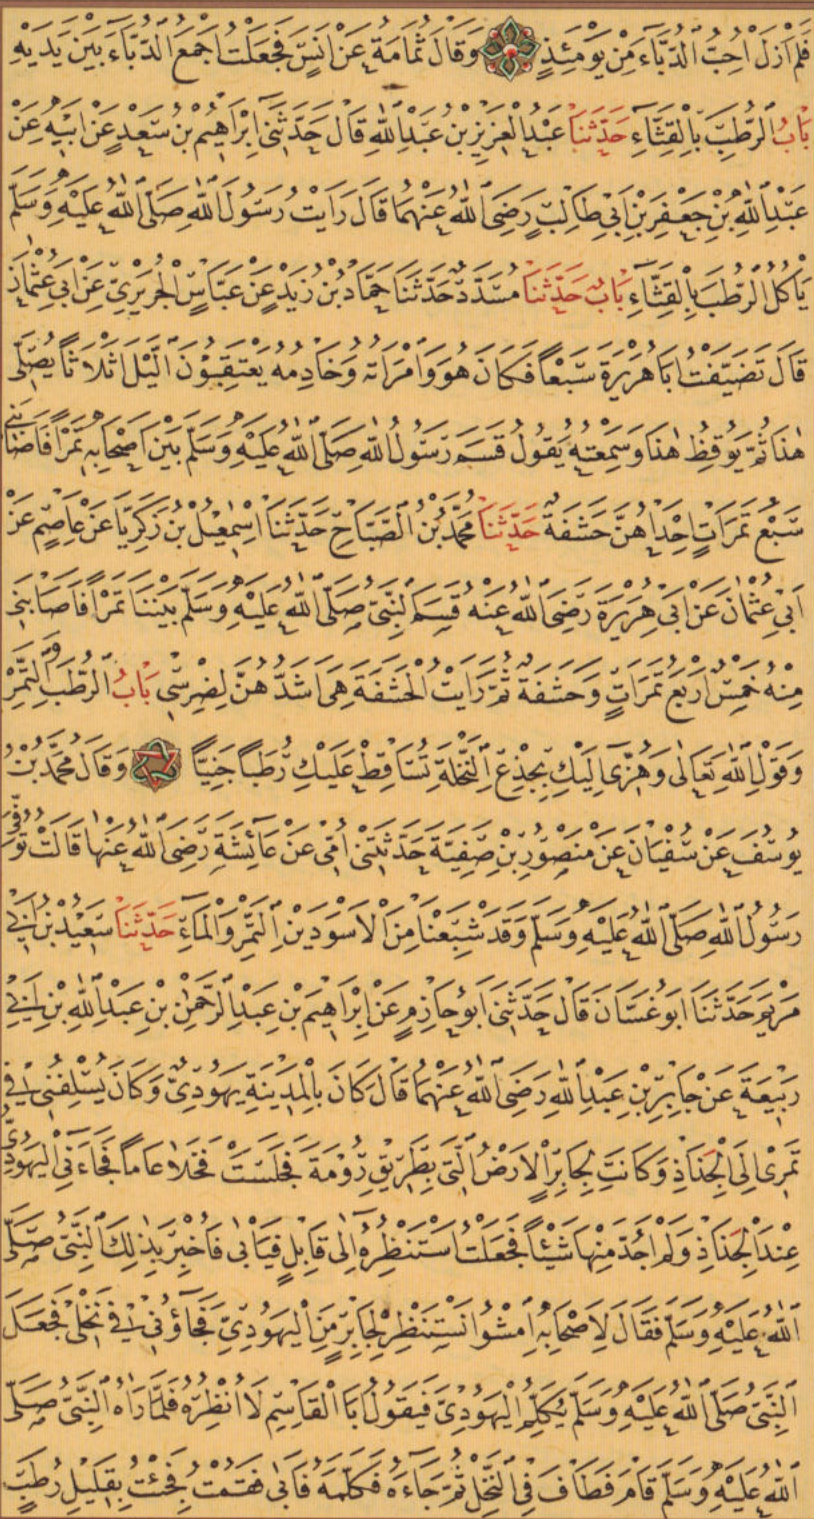 فَلَمْ اَزَلْ اُحِبُّ الدُّبَّاءَ مِنْ يَوْمَئِذٍ وَقَالَ ثُمَامَةُ عَنْ اَنَسٍ فَجَعَلْتُ اَجْمَعُ الدُّبَّاءَ بَيْنَ يَدَيْهِ
بَابُ الرُّطَبِ بِالْقِثَّاءِ حَدَّثَنَا عَبْدُ الْعَزِيزِ بْنُ عَبْدِ اللّٰهِ قَالَ حَدَّثَنِى اِبْرَاهِيمُ بْنُ سَعْدٍ عَنْ اَبِيهِ عَنْ
عَبْدِ اللّٰهِ بْنِ جَعْفَرِ بْنِ اَبِى طَالِبٍ رَضِىَ اللّٰهُ عَنْهُمَا قَالَ رَاَيْتُ رَسُولَ اللّٰهِ صَلَّى اللّٰهُ عَلَيْهِ وَسَلَّمَ
يَاْكُلُ الرُّطَبَ بِالْقِثَّاءِ بَابٌ حَدَّثَنَا مُسَدَّدٌ حَدَّثَنَا حَمَّادُ بْنُ زَيْدٍ عَنْ عَبَّاسٍ الْجُرَيْرِىِّ عَنْ اَبِى عُثْمَانَ
قَالَ تَضَيَّفْتُ اَبَا هُرَيْرَةَ سَبْعًا فَكَانَ هُوَ وَامْرَاَتُهُ وَخَادِمُهُ يَعْتَقِبُونَ الَّيْلَ اَثْلَاثًا يُصَلِّى
هٰذَا ثُمَّ يُوقِظُ هٰذَا وَسَمِعْتُهُ يَقُولُ قَسَمَ رَسُولُ اللّٰهِ صَلَّى اللّٰهُ عَلَيْهِ وَسَلَّمَ بَيْنَ اَصْحَابِهِ تَمْرًا فَاَصَابَنِى
سَبْعُ تَمَرَاتٍ اِحْدَاهُنَّ حَشَفَةٌ حَدَّثَنَا مُحَمَّدُ بْنُ الصَّبَّاحِ حَدَّثَنَا اِسْمٰعِيلُ بْنُ زَكَرِيَّا عَنْ عَاصِمٍ عَنْ
اَبِى عُثْمَانَ عَنْ اَبِى هُرَيْرَةَ رَضِىَ اللّٰهُ عَنْهُ قَسَمَ النَّبِىُّ صَلَّى اللّٰهُ عَلَيْهِ وَسَلَّمَ بَيْنَنَا تَمْرًا فَاَصَابَنِى
مِنْهُ خَمْسٌ اَرْبَعُ تَمَرَاتٍ وَحَشَفَةٌ ثُمَّ رَاَيْتُ الْحَشَفَةَ هِىَ اَشَدُّهُنَّ لِضِرْسِى بَابُ الرُّطَبِ وَالتَّمْرِ
وَقَوْلِ اللّٰهِ تَعَالٰى وَهُزِّى اِلَيْكِ بِجِذْعِ النَّخْلَةِ تُسَاقِطْ عَلَيْكِ رُطَبًا جَنِيًّا وَقَالَ مُحَمَّدُ بْنُ
يُوسُفَ عَنْ سُفْيَانَ عَنْ مَنْصُورِ بْنِ صَفِيَّةَ حَدَّثَتْنِى اُمِّى عَنْ عَائِشَةَ رَضِىَ اللّٰهُ عَنْهَا قَالَتْ تُوُفِّىَ
رَسُولُ اللّٰهِ صَلَّى اللّٰهُ عَلَيْهِ وَسَلَّمَ وَقَدْ شَبِعْنَا مِنَ الْاَسْوَدَيْنِ التَّمْرِ وَالْمَاءِ حَدَّثَنَا سَعِيدُ بْنُ اَبِى
مَرْيَمَ حَدَّثَنَا اَبُو غَسَّانَ قَالَ حَدَّثَنِى اَبُو حَازِمٍ عَنْ اِبْرَاهِيمَ بْنِ عَبْدِ الرَّحْمٰنِ بْنِ عَبْدِ اللّٰهِ بْنِ اَبِى
رَبِيعَةَ عَنْ جَابِرِ بْنِ عَبْدِ اللّٰهِ رَضِىَ اللّٰهُ عَنْهُمَا قَالَ كَانَ بِالْمَدِينَةِ يَهُودِىٌّ وَكَانَ يُسْلِفُنِى فِى
تَمْرِى اِلَى الْجِذَاذِ وَكَانَتْ لِجَابِرٍ الْاَرْضُ الَّتِى بِطَرِيقِ رُومَةَ فَجَلَسَتْ فَخَلَا عَامًا فَجَاءَنِى الْيَهُودِىُّ
عِنْدَ الْجِذَاذِ وَلَمْ اَجُدَّ مِنْهَا شَيْئًا فَجَعَلْتُ اَسْتَنْظِرُهُ اِلٰى قَابِلٍ فَيَاْبٰى فَاُخْبِرَ بِذٰلِكَ النَّبِىُّ صَلَّى
اللّٰهُ عَلَيْهِ وَسَلَّمَ فَقَالَ لِاَصْحَابِهِ اِمْشُوا نَسْتَنْظِرْ لِجَابِرٍ مِنَ الْيَهُودِىِّ فَجَاؤُنِى فِى نَخْلِى فَجَعَلَ
النَّبِىُّ صَلَّى اللّٰهُ عَلَيْهِ وَسَلَّمَ يُكَلِّمُ الْيَهُودِىَّ فَيَقُولُ اَبَا الْقَاسِمِ لَا اُنْظِرُهُ فَلَمَّا رَاٰهُ النَّبِىُّ صَلَّى
اللّٰهُ عَلَيْهِ وَسَلَّمَ قَامَ فَطَافَ فِى النَّخْلِ ثُمَّ جَاءَهُ فَكَلَّمَهُ فَاَبٰى فَقُمْتُ فَجِئْتُ بِقَلِيلِ رُطَبٍ